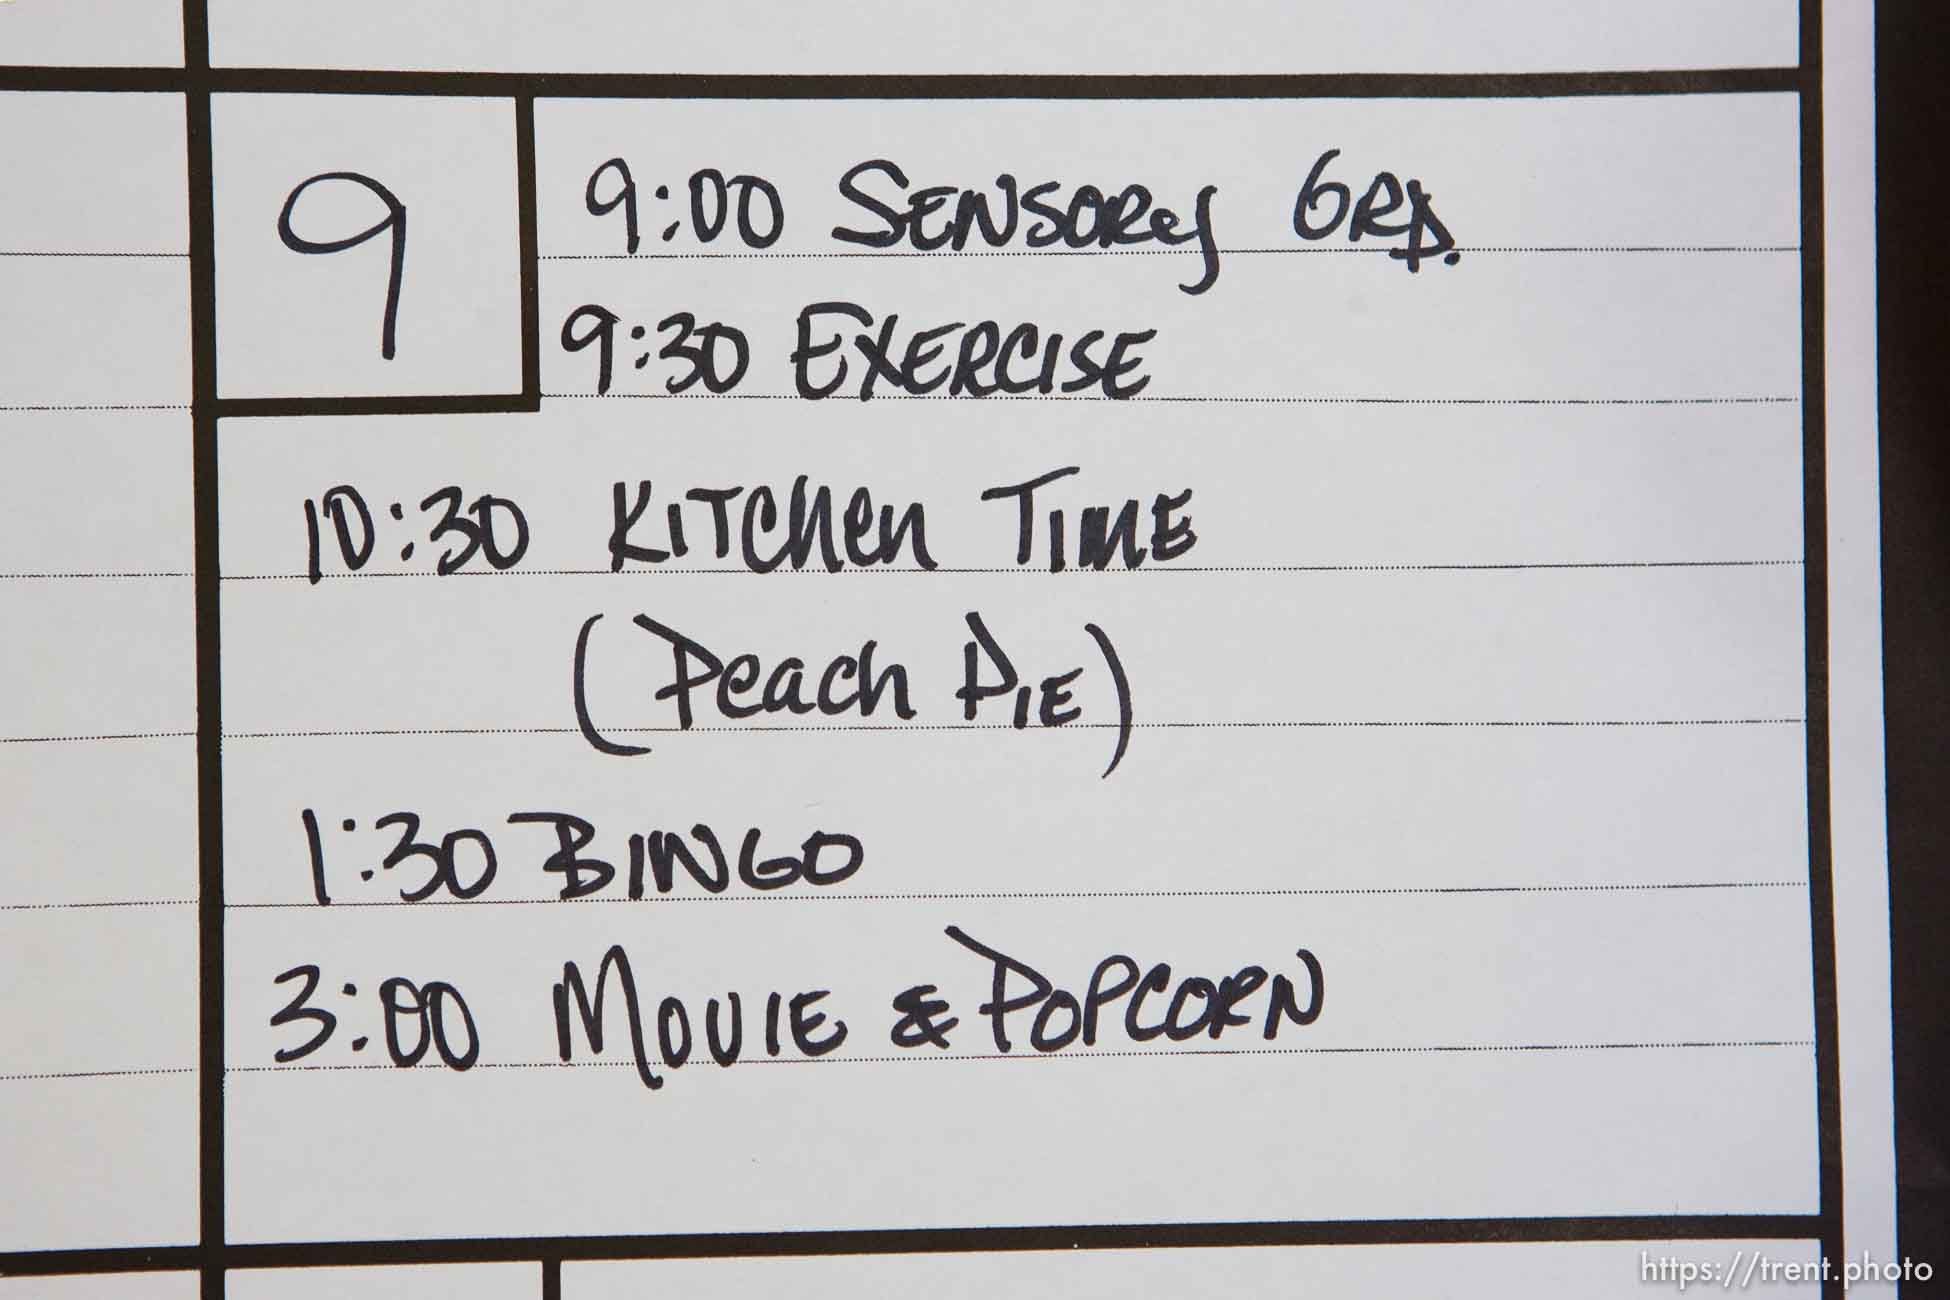 9
9:00 Sensory Grp.
9:30 Exercise
10:30 Kitchen Time
(Peach Pie)
1:30 Bingo
3:00 Movie & Popcorn
https://trent.photo